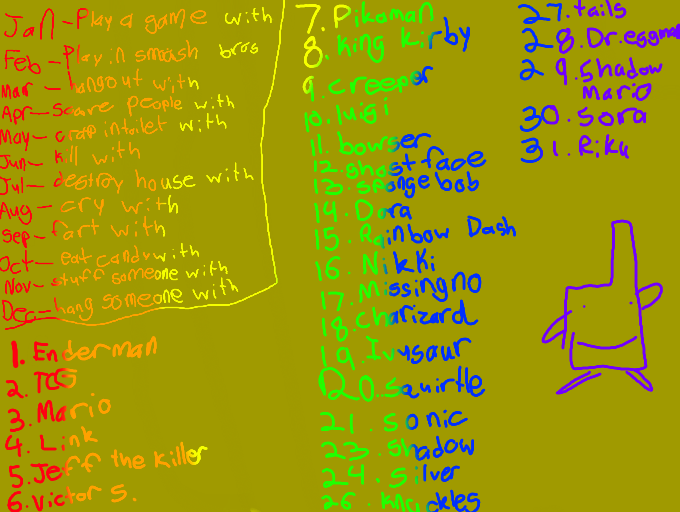 Jan - Play a game with
Feb - Play in smash bros
Mar - hangout with
Apr - scare people with
May - crap in toilet with
Jun - kill with
Jul - destroy house with
Aug - cry with
Sep - fart with
Oct - eat candy with
Nov - stuff someone with
Dec - hang someone with
1. Enderman
2. TCS
3. Mario
4. Link
5. Jeff the Killer
6. Victor S.
7. Pikaman
8. King Kirby
9. creeper
10. luigi
11. bowser
12. ghostface
13. spongebob
14. Dora
15. Rainbow Dash
16. Nikki
17. Missingno
18. Charizard
19. Ivysaur
20. Squirtle
21. Sonic
23. Shadow
24. Silver
26. Knuckles
27. tails
28. Dr. eggman
29. Shadow
Mario
30. Sora
31. Riku